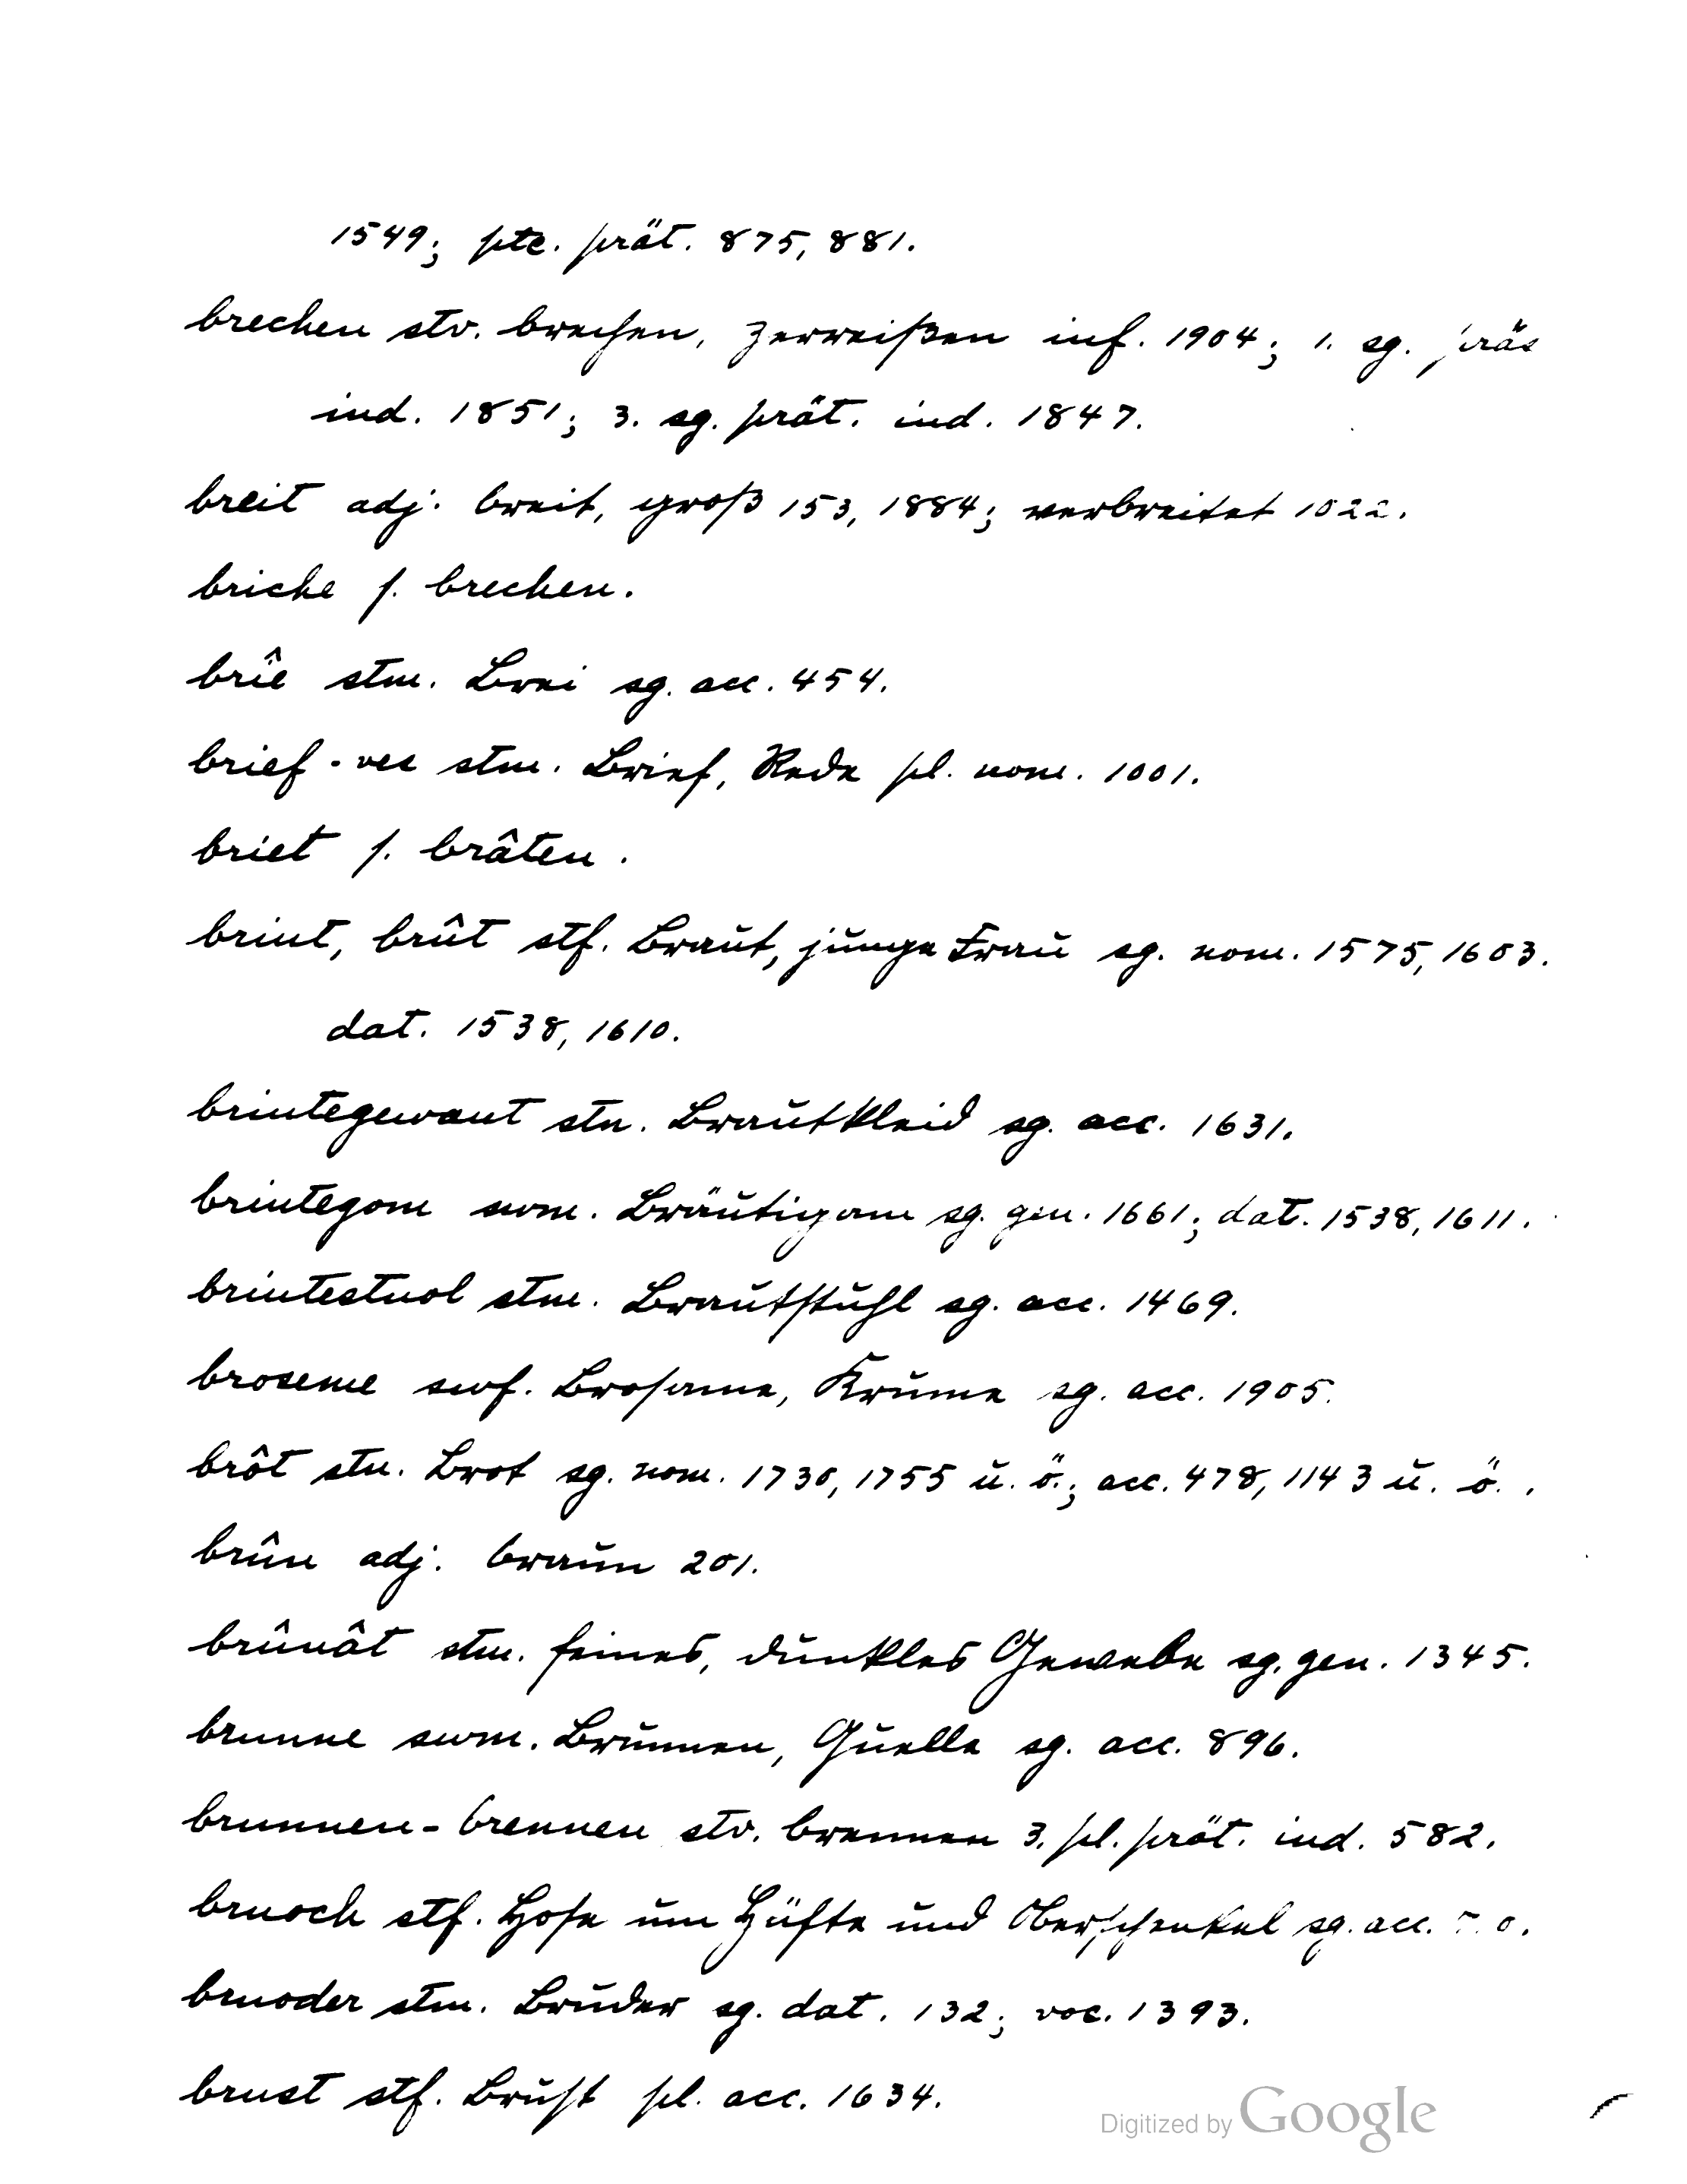 1549; ptc. prät. 875, 881.
brechen stv. brechen, zerreißen inf. 1904; 1. sg. präs
ind. 1851; 3. sg. prät. ind. 1847.
breit adj. breit, groß 153, 1884; verbreitet 1022.
briche s. brechen.
brîe stm. Brei sg. acc. 454.
brief -ves stm. Brief, Rede pl. nom. 1001.
briet s. brâten.
briut, brût stf. Braut, junge Frau sg. nom. 1575, 1603.
dat. 1538, 1610.
briutegewant stn. Brautkleid sg. acc. 1631.
briutegom swm. Bräutigam sg. gen. 1661; dat. 1538, 1611.
briutestuol stm. Brautstuhl sg. acc. 1469.
broseme swf. Brosame, Krume sg. acc. 1905.
brôt stn. Brot sg. nom. 1730, 1755 u. ö.; acc. 478, 1143 u. ö. .
brûn adj. braun 201.
brûnât stm. feines, dunkles Gewebe sg. gen. 1345.
brunne swm. Brunnen, Quelle sg. acc. 896.
brunnen - brennen stv. brennen 3. pl. prät. ind. 582.
bruoch stf. Hose um Hüfte und Oberschenkel sg. acc.
bruoder stm. Bruder sg. dat. 132; voc. 1393.
brust stf. Brust pl. acc. 1634.
Digitized by Google